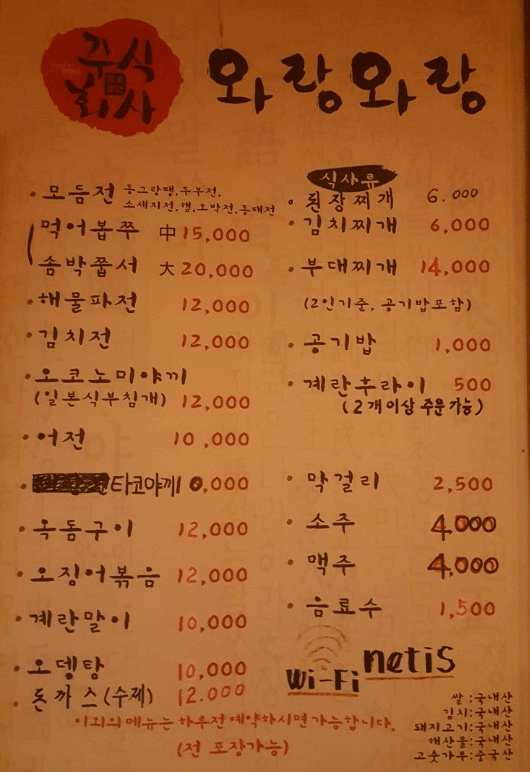 주식
회사
와랑와랑
· 모듬전 동그랑땡, 두부전,
소세지전, 햄, 호박전, 동태전
먹어봅쭈 中 15,000
솜박쭙서 大 20,000
· 해물파전 12,000
· 김치전 12,000
· 오코노미야끼
(일본식부침개) 12,000
· 어전 10,000
· 타코야끼 0,000
· 옥돔구이 12,000
· 오징어볶음 12,000
· 계란말이 10,000
· 오뎅탕 10,000
· 돈까스(수제) 12.000
식사류
· 된장찌개 6.000
· 김치찌개 6,000
· 부대찌개 14,000
(2인기준, 공기밥포함)
· 공기밥 1,000
· 계란후라이 500
(2개이상 주문가능)
· 막걸리 2,500
· 소주 4,000
· 맥주 4,000
· 음료수 1,500
Wi-Fi netis
이외의 메뉴는 하루전 예약하시면 가능합니다.
(전 포장가능)
쌀:국내산
김치:국내산
돼지고기:국내산
해산물:국내산
고춧가루:중국산